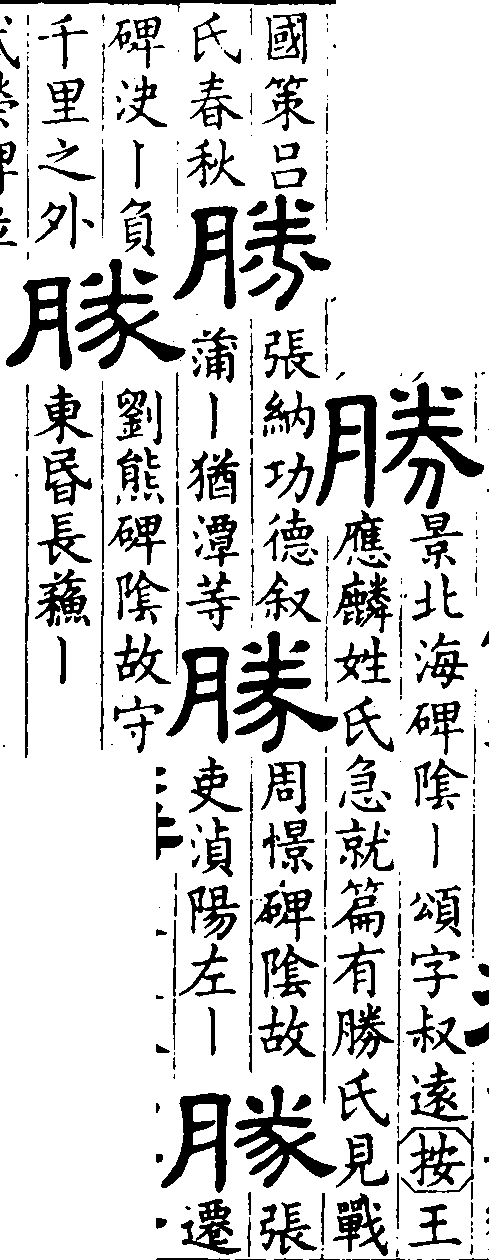 勝
景北海碑陰丨頌字叔遠按王
應麟姓氏急就篇有勝氏見戰
國策呂
氏春秋
勝
張納功德叙
蒲丨猶潭等
勝
周憬碑陰故
吏湞陽左丨
勝
張
遷
碑決丨負
千里之外
勝
劉熊碑陰故守
東昬長蘓丨